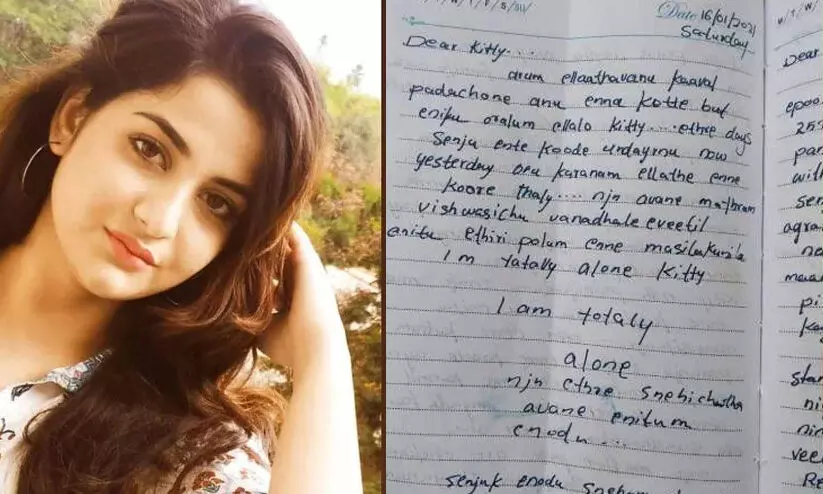 Date 16/01/2021
Saturday
Dear Kitty....
arum ellaathavanu kaaval
padachone anu enna kotte but
eniku oralum ellalo Kitty....ethre days
Senju ente koode undayrnu now
yesterday oru karanam ellathe enne
koore thaly.... njn avane mathram
vishwasichu vanadhale eveetil
enitu ethiri polum enne masilakunila
I m totally alone Kitty
I am totaly
alone
njn ethre snehichatha
avane enitum
enodu...
senjuk enodu
Dear
epoo
255
par
with
sen
agra
na
maa
pi
stan
ni
nin
vee
Re